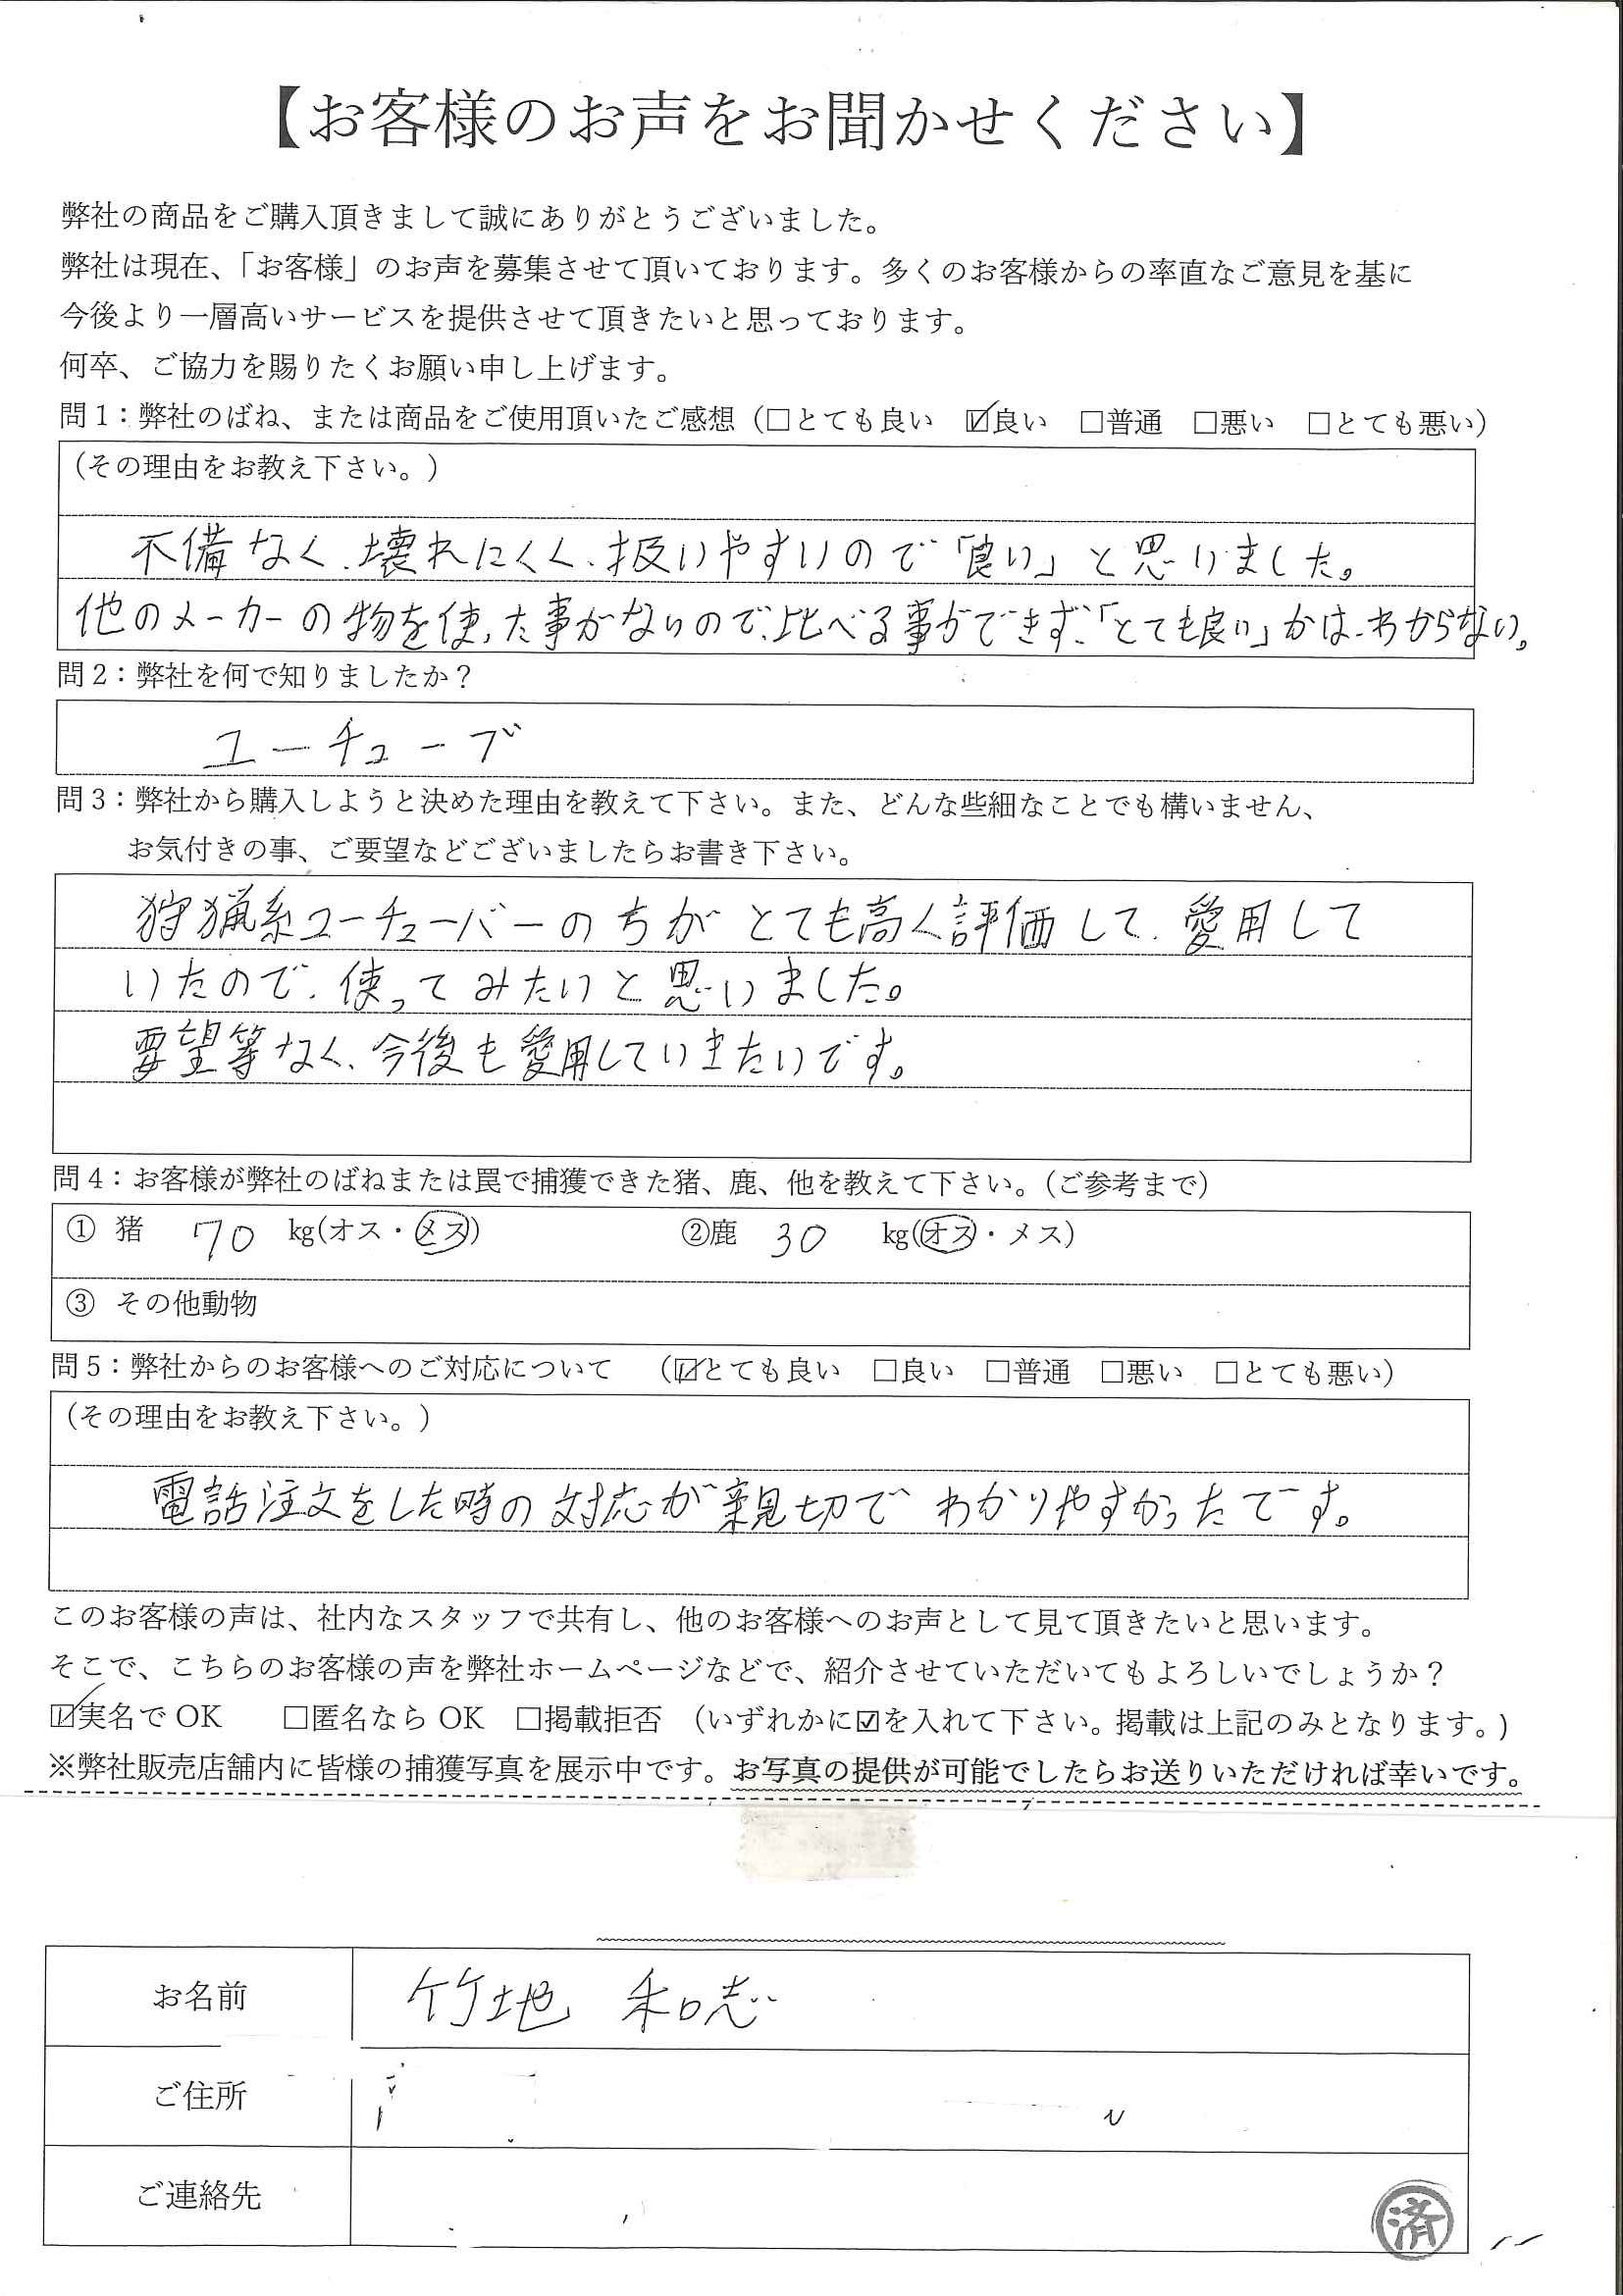 【お客様のお声をお聞かせください】
弊社の商品をご購入頂きまして誠にありがとうございました。
弊社は現在、「お客様」のお声を募集させて頂いております。多くのお客様からの率直なご意見を基に
今後より一層高いサービスを提供させて頂きたいと思っております。
何卒、ご協力を賜りたくお願い申し上げます。
問1：弊社のばね、または商品をご使用頂いたご感想（□とても良い ☑良い □普通 □悪い □とても悪い）
（その理由をお教え下さい。）
不備なく、壊れにくく、扱いやすいので「良い」と思いました。
他のメーカーの物を使った事がないので、比べる事ができず、「とても良い」かは、わからない。
問2：弊社を何で知りましたか？
ユーチューブ
問3：弊社から購入しようと決めた理由を教えて下さい。また、どんな些細なことでも構いません、
お気付きの事、ご要望などございましたらお書き下さい。
狩猟系ユーチューバーの方がとても高く評価して、愛用して
いたので、使ってみたいと思いました。
要望等なく、今後も愛用していきたいです。
問4：お客様が弊社のばねまたは罠で捕獲できた猪、鹿、他を教えて下さい。（ご参考まで）
① 猪 70 kg(オス・メス) ②鹿 30 kg(オス・メス)
③ その他動物
問5：弊社からのお客様へのご対応について （☑とても良い □良い □普通 □悪い □とても悪い）
（その理由をお教え下さい。）
電話注文をした時の対応が親切でわかりやすかったです。
このお客様の声は、社内なスタッフで共有し、他のお客様へのお声として見て頂きたいと思います。
そこで、こちらのお客様の声を弊社ホームページなどで、紹介させていただいてもよろしいでしょうか？
☑実名で OK □匿名なら OK □掲載拒否 （いずれかに☑を入れて下さい。掲載は上記のみとなります。）
※弊社販売店舗内に皆様の捕獲写真を展示中です。お写真の提供が可能でしたらお送りいただければ幸いです。
お名前 竹地 和志
ご住所
ご連絡先
済